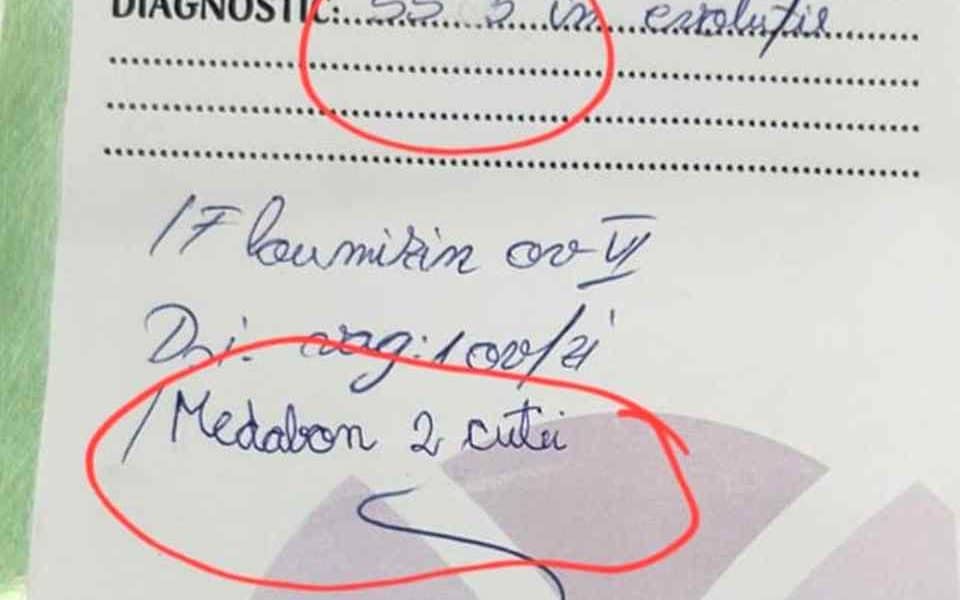 DIAGNOSTIC: SS 5 în evoluție
/Floumizin ov VI
D.i. vag: 1 ov/zi
/Medabon 2 cutii